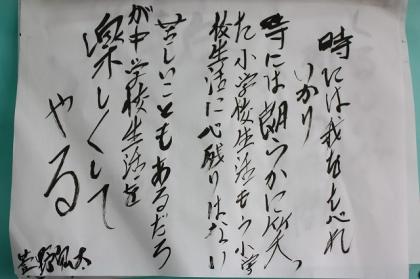 時には我を忘れ
いかり
時には朗らかに笑っ
た小学校生活もう小学
校生活に心残りはない
苦しいこともあるだろ
うが中学校生活を
楽しくして
やる